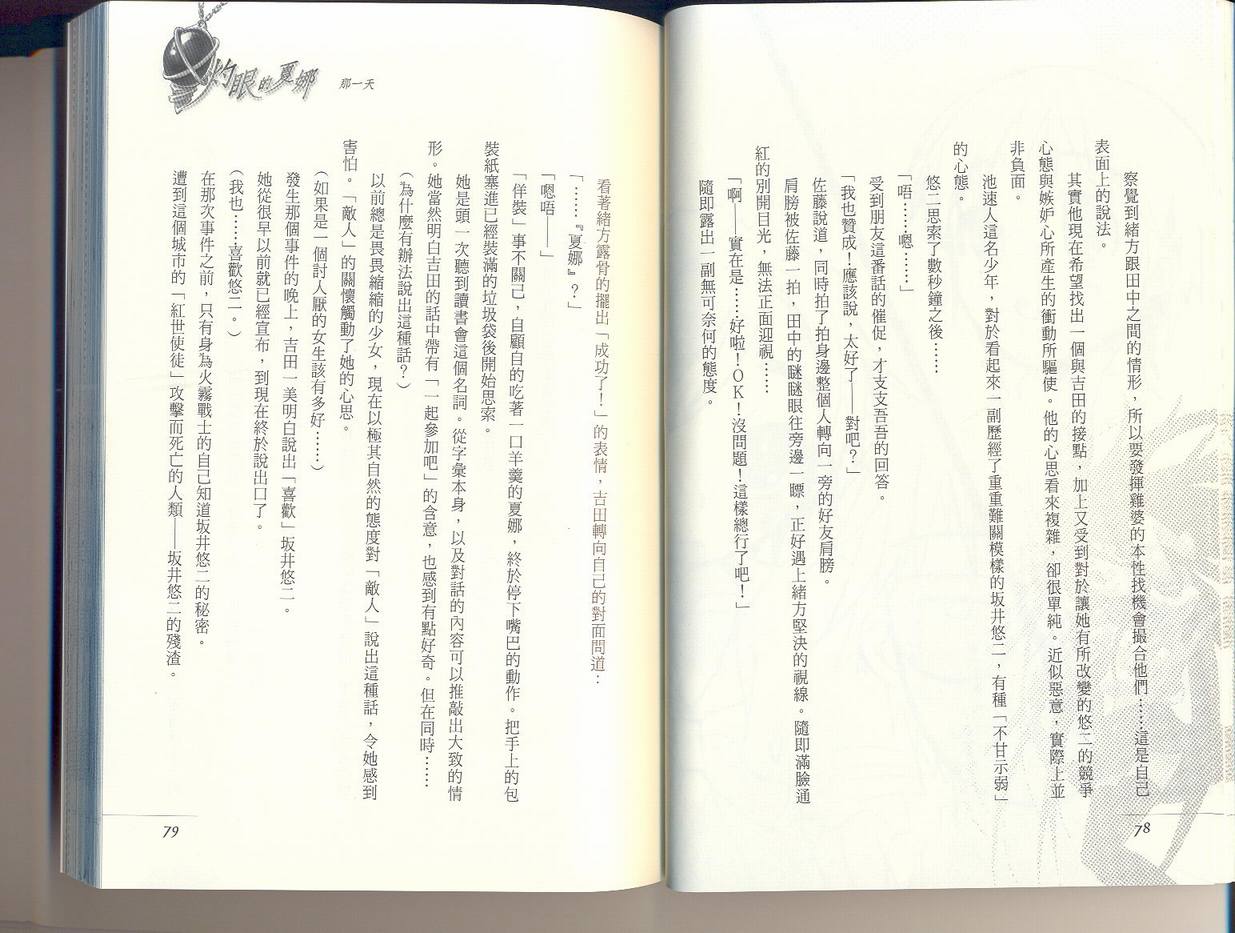 察覺到緒方跟田中之間的情形，所以要發揮雞婆的本性找機會撮合他們……這是自己
表面上的說法。
其實他現在希望找出一個與吉田的接點，加上又受到對於讓她有所改變的悠二的競爭
心態與嫉妒心所產生的衝動所驅使。他的心思看來複雜，卻很單純。近似惡意，實際上並
非負面。
池速人這名少年，對於看起來一副歷經了重重難關模樣的坂井悠二，有種「不甘示弱」
的心態。
悠二思索了數秒鐘之後……
「唔……嗯……」
受到朋友這番話的催促，才支支吾吾的回答。
「我也贊成！應該說，太好了——對吧？」
佐藤說道，同時拍了拍身邊整個人轉向一旁的好友肩膀。
肩膀被佐藤一拍，田中的瞇瞇眼往旁邊一瞟，正好遇上緒方堅決的視線。隨即滿臉通
紅的別開目光，無法正面迎視……
「啊——實在是……好啦！OK！沒問題！這樣總行了吧！」
隨即露出一副無可奈何的態度。
78
灼眼的夏娜 那一天
看著緒方露骨的擺出「成功了！」的表情，吉田轉向自己的對面問道：
「……『夏娜』？」
「嗯唔——」
「佯裝」事不關己，自顧自的吃著一口羊羹的夏娜，終於停下嘴巴的動作。把手上的包
裝紙塞進已經裝滿的垃圾袋後開始思索。
她是頭一次聽到讀書會這個名詞。從字彙本身，以及對話的內容可以推敲出大致的情
形。她當然明白吉田的話中帶有「一起參加吧」的含意，也感到有點好奇。但在同時……
（為什麼有辦法說出這種話？）
以前總是畏畏縮縮的少女，現在以極其自然的態度對「敵人」說出這種話，令她感到
害怕。「敵人」的關懷觸動了她的心思。
（如果是一個討人厭的女生該有多好……）
發生那個事件的晚上，吉田一美明白說出「喜歡」坂井悠二。
她從很早以前就已經宣布，到現在終於說出口了。
（我也……喜歡悠二。）
在那次事件之前，只有身為火霧戰士的自己知道坂井悠二的秘密。
遭到這個城市的「紅世使徒」攻擊而死亡的人類——坂井悠二的殘渣。
79